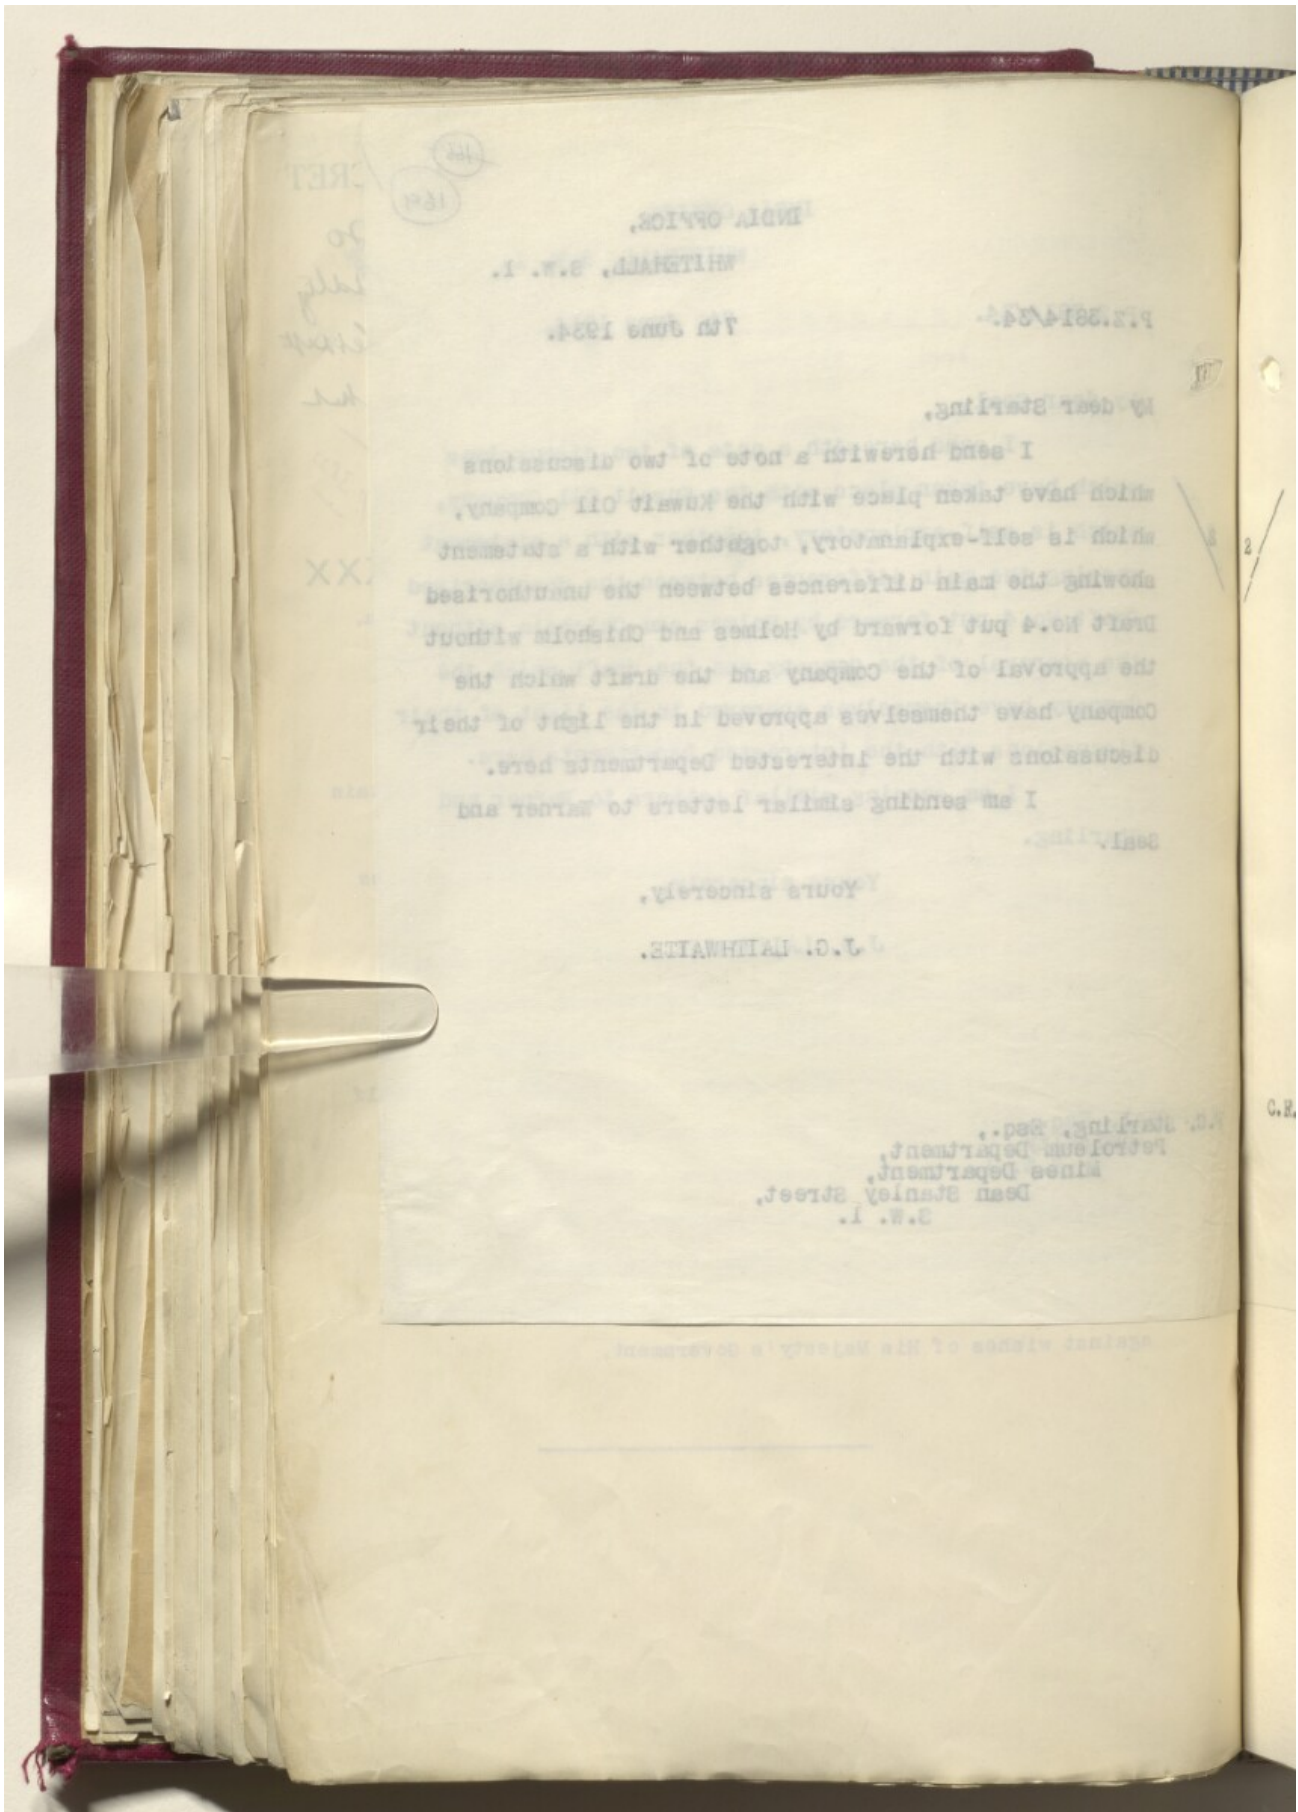 166
169
INDIA OFFICE,
WHITEHALL, S.W. 1.
P.Z.3614/34.
7th June 1934.
My dear Starling,
I send herewith a note of two discussions
which have taken place with the Kuwait Oil Company,
which is self-explanatory, together with a statement
showing the main differences between the unauthorised
Draft No.4 put forward by Holmes and Chisholm without
the approval of the Company and the draft which the
Company have themselves approved in the light of their
discussions with the interested Departments here.
I am sending similar letters to Warner and
Seal.
Yours sincerely,
J.G. LAITHWAITE.
F.C. Starling, Esq.,
Petroleum Department,
Mines Department,
Dean Stanley Street,
S.W. 1.
against wishes of His Majesty's Government.
2